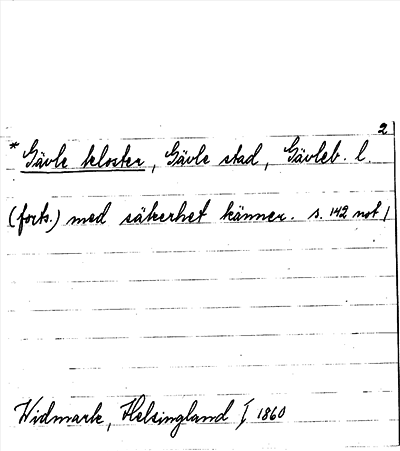 2
* Gävle kloster, Gävle stad, Gävleb. l.
(forts.) med säkerhet känner. s. 142 not 1
Widmark, Helsingland I 1860